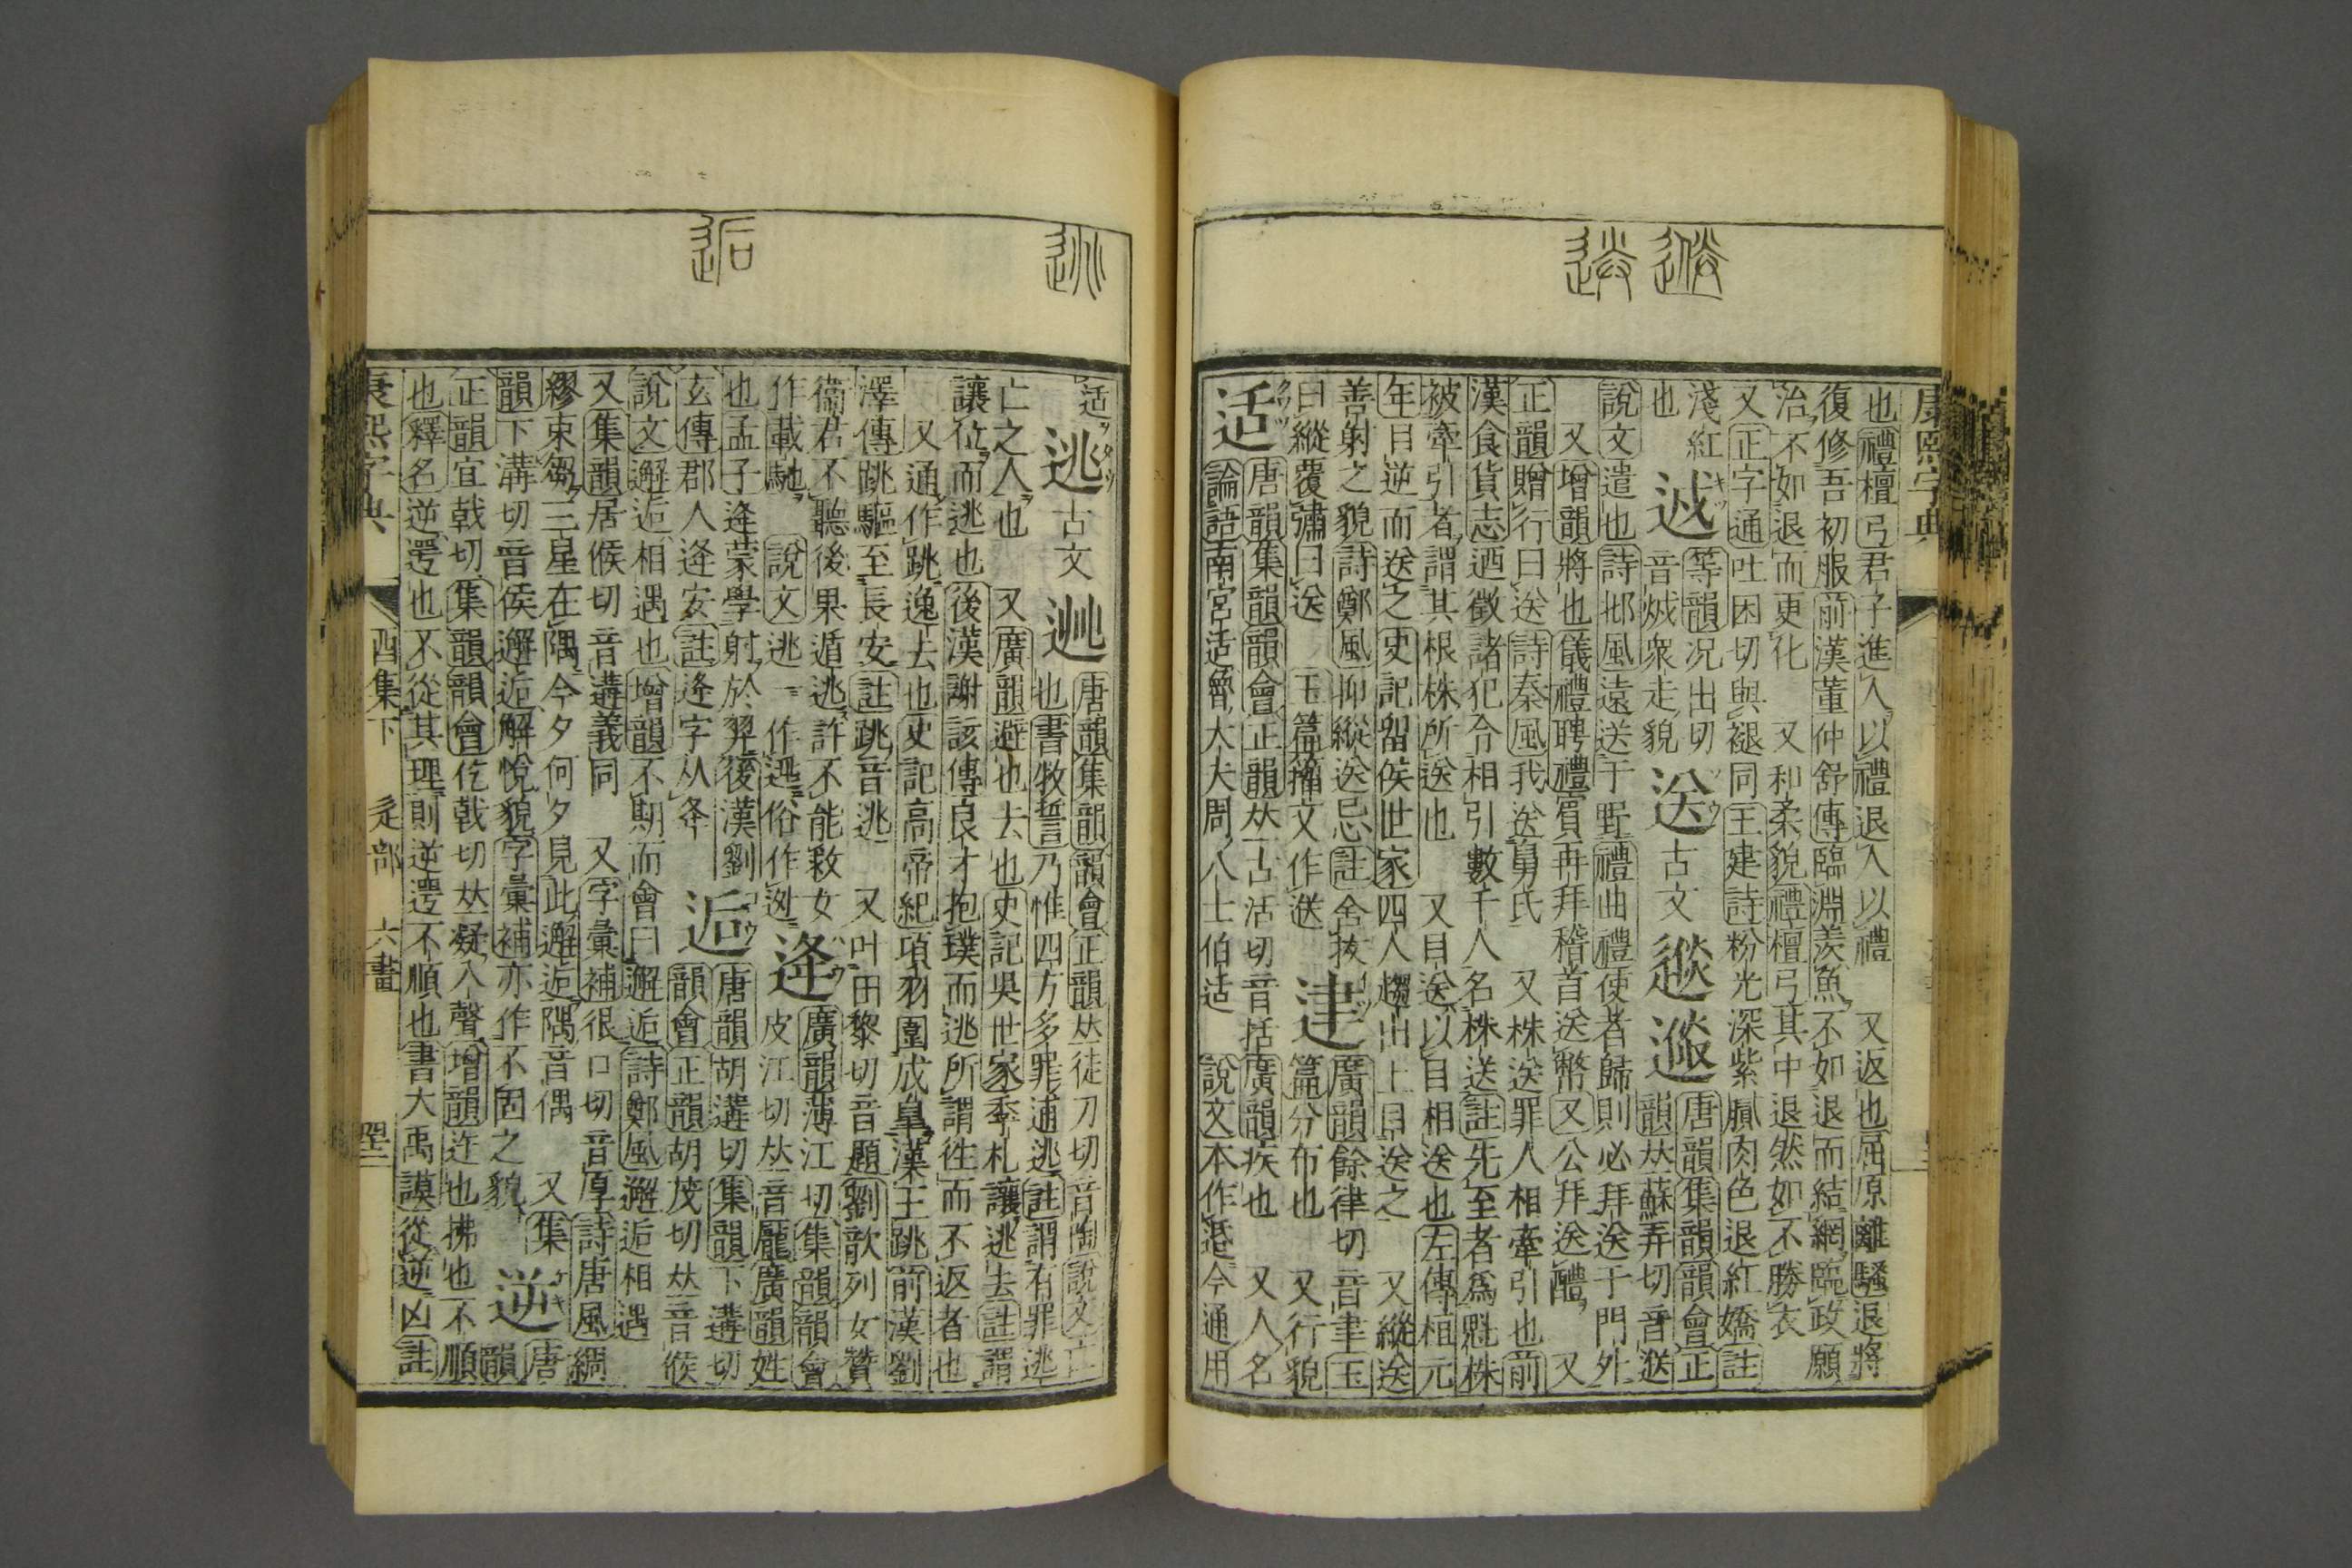 康熙字典
也禮檀弓君子進人以禮退人以禮 又返也屈原離騷退將
復修吾初服前漢董仲舒傳臨淵羨魚不如退而結網臨政願
治不如退而更化 又和柔貌禮檀弓其中退然如不勝衣
又正字通吐困切與褪同王建詩粉光深紫膩肉色退紅嬌註
淺紅
也
䟠等韻况出切
音烕衆走貌
送古文𨕩𨘂唐韻集韻韻會正
韻𠀤蘇弄切音𨕩
說文遣也詩邶風遠送于野禮曲禮使者歸則必拜送于門外
又增韻將也儀禮聘禮賓再拜稽首送幣又公拜送醴 又
正韻贈行曰送詩秦風我送舅氏 又株送罪人相牽引也前
漢食貨志廼徵諸犯令相引數千人名株送註先至者爲魁株
被牽引者謂其根株所送也 又目送以目相送也左傳桓元
年目逆而送之史記留侯世家四人趨出上目送之 又縱送
善射之貌詩鄭風抑縱送忌註舍拔
曰縱覆彇曰送 玉篇籀文作𨕩
𨒋廣韻餘律切音聿玉
篇分布也 又行貌
适唐韻集韻韻會正韻𠀤古活切音括廣韻疾也 又人名
論語南宮适 大夫周八士伯适 說文本作𨓈今通用
适
逃古文𨒫唐韻集韻韻會正韻𠀤徒刀切音陶說文亡
也書牧誓乃惟四方多罪逋逃註謂有罪逃
亡之人也 又廣韻避也去也史記吳世家季札讓逃去註謂
讓位而逃也後漢謝該傳良才抱璞而逃所謂往而不返者也
又通作跳逸去也史記高帝紀項羽圍成皐漢王跳前漢劉
澤傳跳驅至長安註跳音逃 又叶田黎切音題劉歆列女贊
衞君不聽後果遁逃許不能救女
作載馳 說文逃一作𨓱俗作迯
逄廣韻薄江切集韻韻會
皮江切𠀤音龐廣韻姓
也孟子逄蒙學射於羿後漢劉
玄傳郡人逄安註逄字从夅
逅唐韻胡遘切集韻下遘切
韻會正韻胡茂切𠀤音候
說文邂逅相遇也增韻不期而會曰邂逅詩鄭風邂逅相遇
又集韻居候切音遘義同 又字彙補很口切音厚詩唐風綢
繆束芻三星在隅今夕何夕見此邂逅隅音偶 又集
韻下溝切音侯邂逅解悅貌字彙補亦作不固之貌
逆唐韻
正韻宜戟切集韻韻會仡戟切𠀤凝入聲增韻迕也拂也不順
也釋名逆遻也不從其理則逆遻不順也書大禹謨從逆凶註
康熙字典 酉集下 辵部 六畫